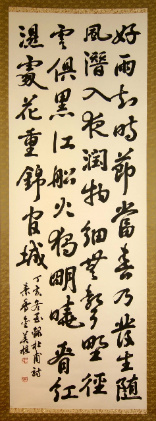 好雨知時節當春乃發生隨
風潛入夜潤物細無聲野徑
雲俱黑江船火獨明曉看紅
濕處花重錦官城
丁亥冬至錄杜甫詩